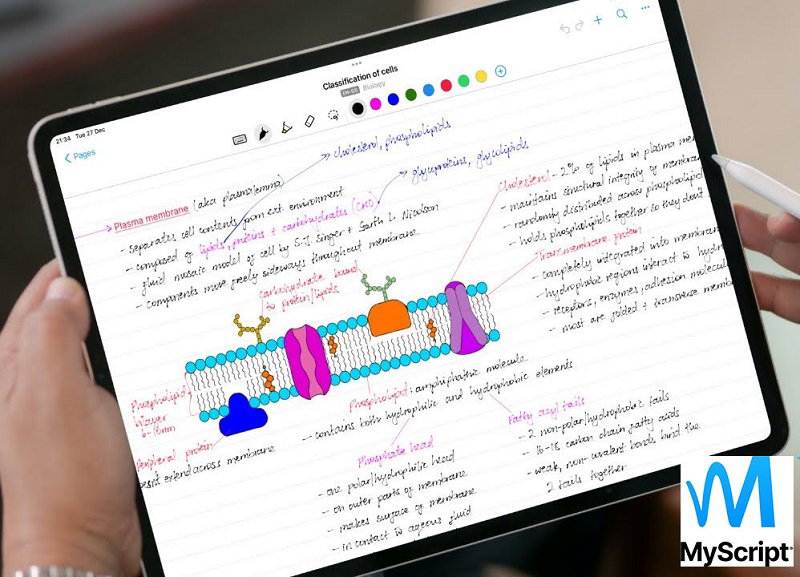 21:34 Tue 27 Dec
Pages
Classification of cells
Biology
cholesterol, phospholipids
glycoproteins, glycolipids
Plasma membrane (aka plasmalemma)
- separates cell contents from ext. environment
- composed of lipids, proteins + carbohydrates (CHO)
- fluid mosaic model of cell by S.J. Singer + Garth L. Nicolson
- components move freely sideways throughout membrane
Cholesterol - 2% of lipids in plasma
- maintains structural integrity of
- randomly distributed across phospholipid
- holds phospholipids together so they don't
Transmembrane protein
- completely integrated into
- hydrophobic regions interact w
- receptors, enzymes, adhesion
- most are folded + transverse
carbohydrate bound
to protein/lipids
Phospholipid
bilayer
6-10nm
Peripheral protein
extend across membrane
Phospholipid: amphipathic molecule
- contains both hydrophilic and hydrophobic elements
Phosphate head
- one polar/hydrophilic head
- on outer parts of membrane
- makes surface of membrane
- in contact w aqeous fluid
Fatty acyl tails
- 2 non-polar/hydrophobic tails
- 16-18 carbon chain fatty acids
- weak, non-covalent bonds bind the
2 tails together
MyScript